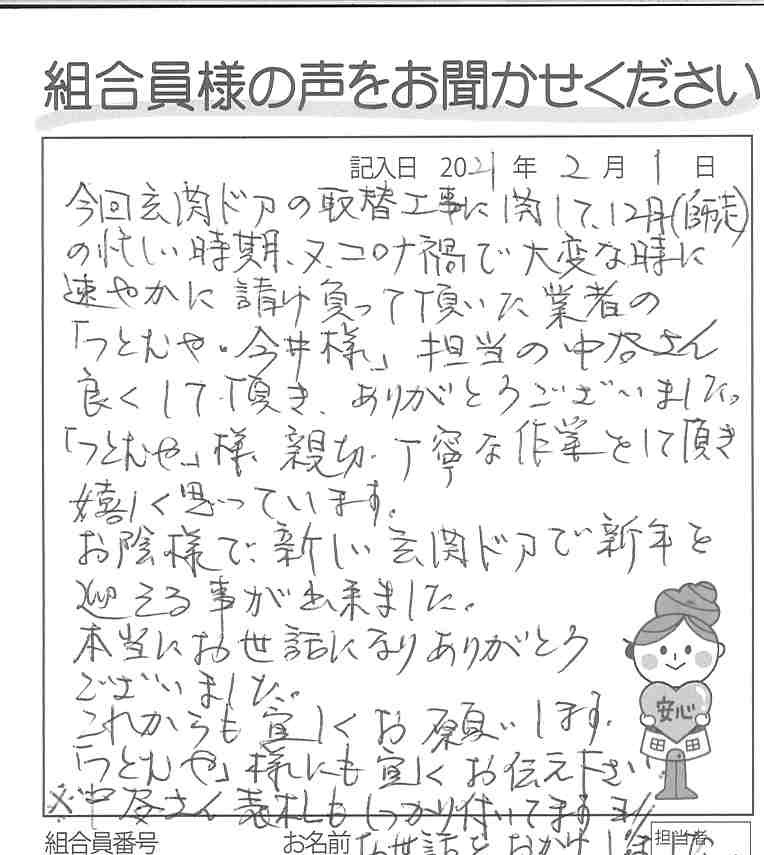 組合員様の声をお聞かせください
記入日 2021年 2月 1日
今回玄関ドアの取替工事に関して、12月(師走)
の忙しい時期、又、コロナ禍で大変な時に
速やかに請け負って頂いた業者の
「つとむや・今井様」担当の中谷さん
良くして頂き、ありがとうございました。
「つとむや」様、親切、丁寧な作業をして頂き
嬉しく思っています。
お陰様で、新しい玄関ドアで新年を
迎える事が出来ました。
本当にお世話になりありがとう
ございました。
これからも宜しくお願いします。
「つとむや」様にも宜しくお伝え下さい
※中谷さん表札もしっかり付いてますヨ!!
安心
組合員番号 お名前 お世話をおかけしました 担当者